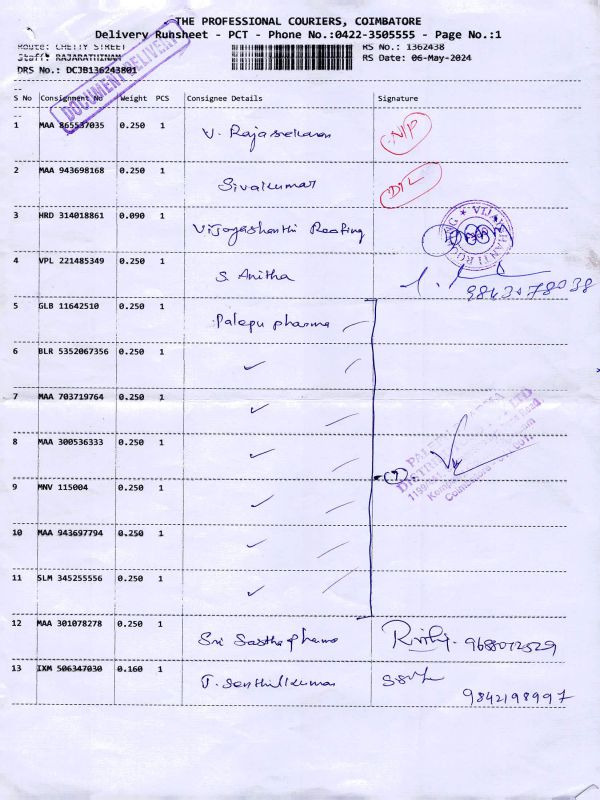 THE PROFESSIONAL COURIERS, COIMBATORE
Delivery Runsheet - PCT - Phone No.:0422-3505555 - Page No.:1
Route: CHETTY STREET
Staff: RAJARATHINAM
DRS No.: DCJB136243801
RS No.: 1362438
RS Date: 06-May-2024
DOCUMENT DELIVERY
S No Consignment No Weight PCS Consignee Details Signature
1 MAA 865537035 0.250 1 V. Rajasekaran N/P
2 MAA 943698168 0.250 1 Sivakumar D/L
3 HRD 314018861 0.090 1 Vijayashanthi Roofing
4 VPL 221485349 0.250 1 S. Anitha
5 GLB 11642510 0.250 1 Palepu pharma
6 BLR 5352067356 0.250 1 ✓
7 MAA 703719764 0.250 1 ✓
8 MAA 300536333 0.250 1 ✓
9 MNV 115004 0.250 1 ✓
10 MAA 943697794 0.250 1 ✓
11 SLM 345255556 0.250 1 ✓
7
12 MAA 301078278 0.250 1 Sri Sastha pharma 9688072529
13 IXM 506347030 0.160 1 T. Senthilkumar
9842198997